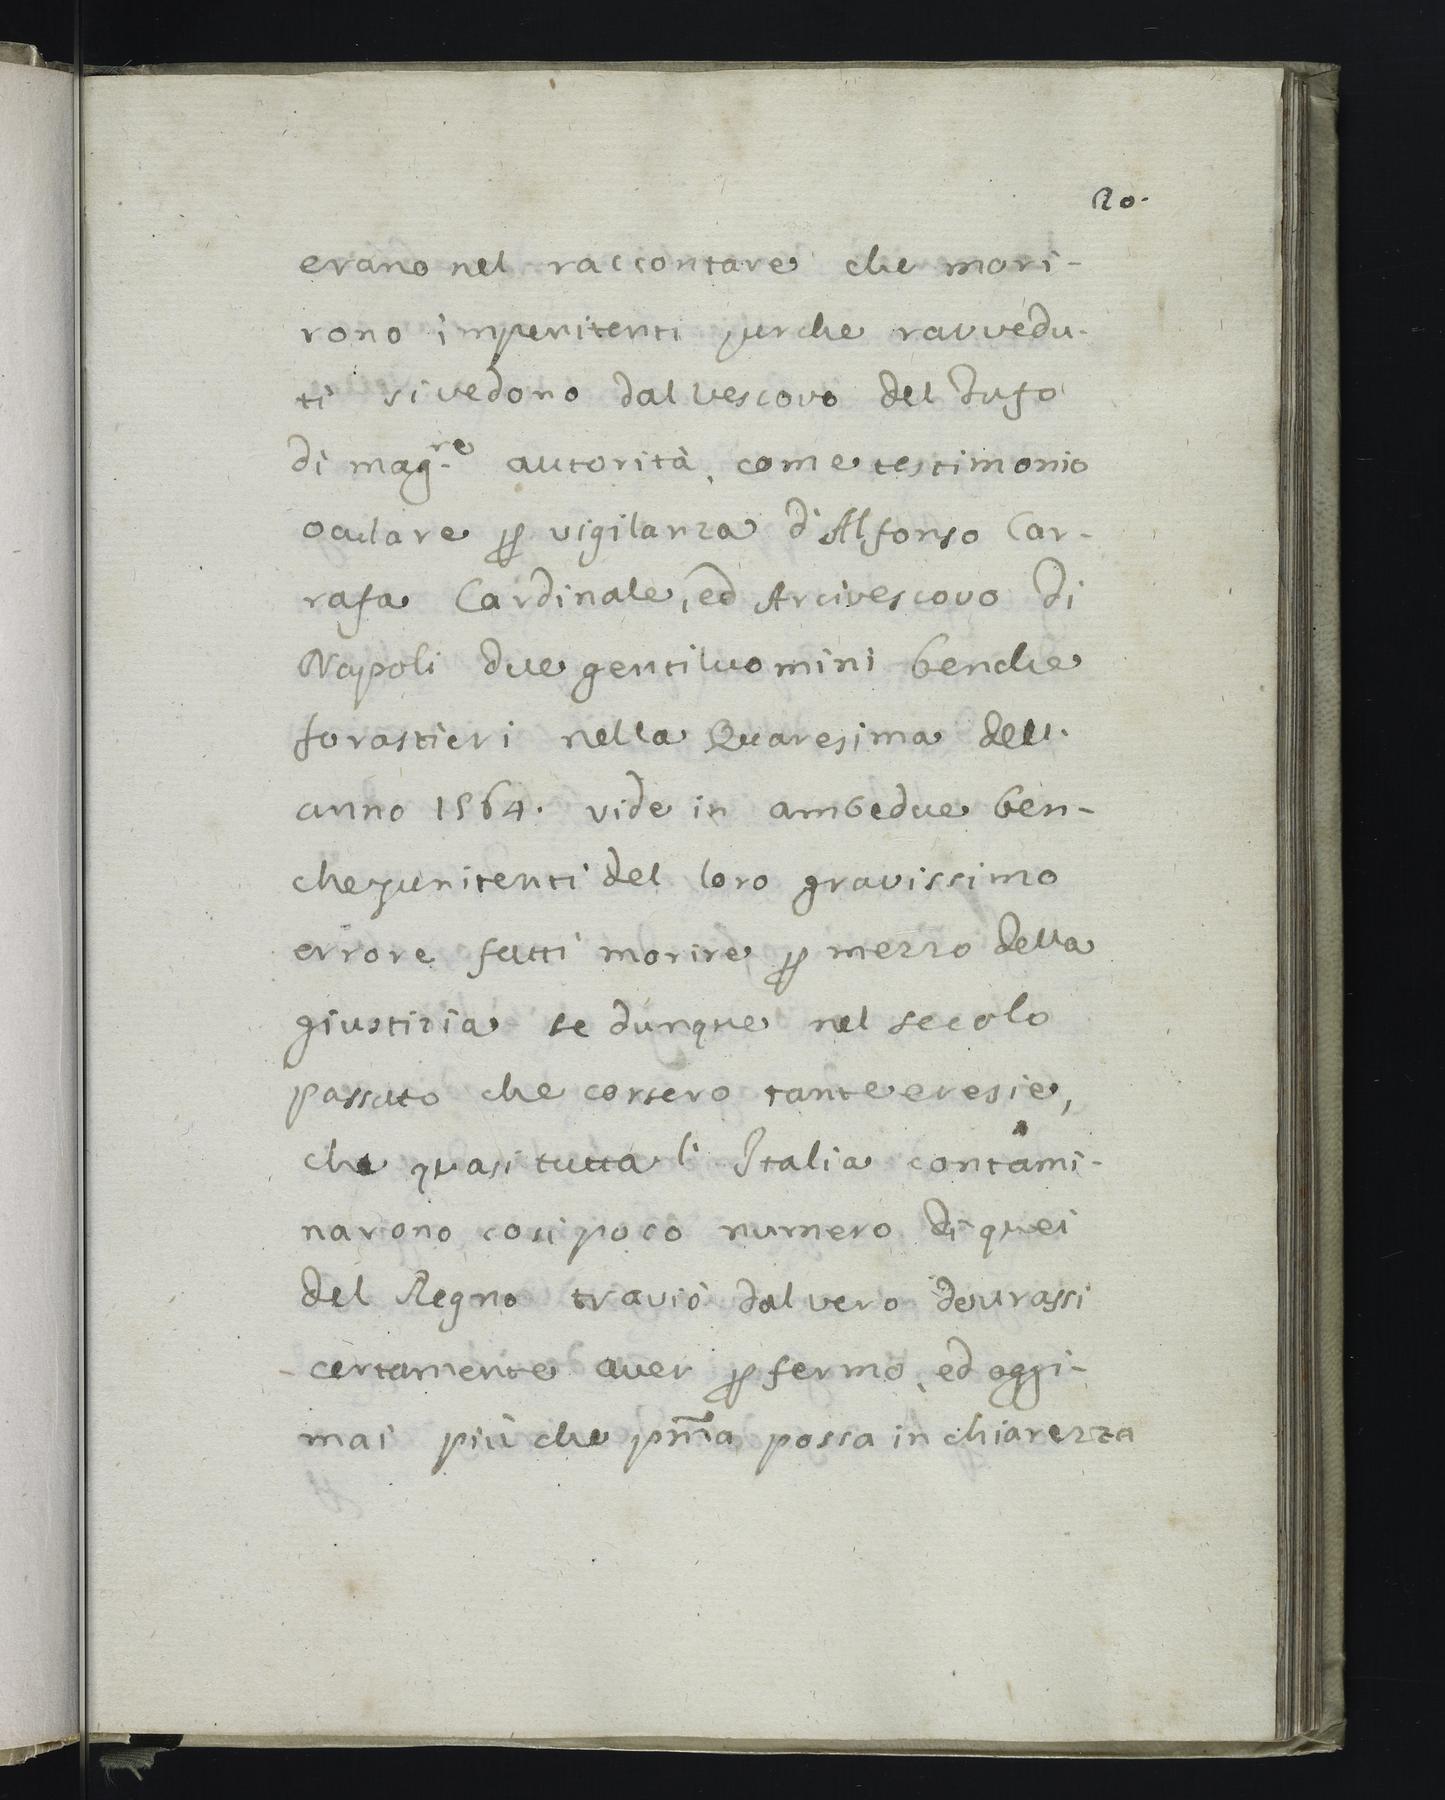 20.
erano nel raccontare che mori-
rono impenitenti perche ravvedu-
ti si vedono dal vescovo del Tufo
di mag.re autorità, come testimonio
oculare ꝑ vigilanza d'Alfonso Car-
rafa Cardinale, ed Arcivescovo di
Napoli due gentiluomini benche
forastieri nella Quaresima dell.
anno 1564. vide in ambedue ben-
che penitenti del loro gravissimo
errore fatti morire ꝑ mezzo della
giustizia se dunque nel secolo
passato che corsero tante eresie,
che quasi tutta l'Italia contami-
narono cosi poco numero di quei
del Regno traviò dal vero devrassi
certamente aver ꝑ fermo, ed oggi-
mai più che pñia possa in chiarezza